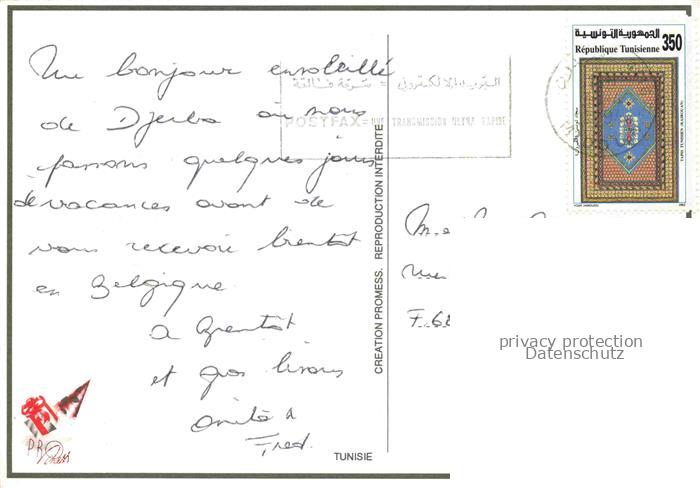 Un bonjour ensoleillé
de Djerba où nous
passons quelques jours
de vacances avant de
vous recevoir bientôt
en Belgique
a bientôt
et gros bisous
Fred.
TUNISIE
CREATION PROMESS. REPRODUCTION INTERDITE
البريد الالكتروني = سرعة فائقة
POSTFAX = UNE TRANSMISSION ULTRA RAPIDE
الجمهورية التونسية
350
République Tunisienne
TAPIS TUNISIEN (KAIROUAN)
F.68
privacy protection
Datenschutz